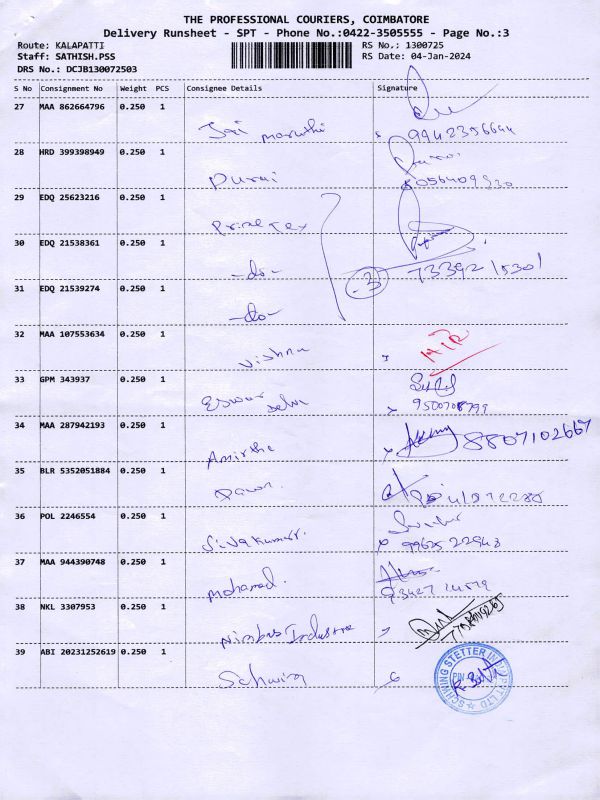 THE PROFESSIONAL COURIERS, COIMBATORE
Delivery Runsheet - SPT - Phone No.:0422-3505555 - Page No.:3
Route: KALAPATTI
RS No.: 1300725
Staff: SATHISH.PSS
RS Date: 04-Jan-2024
DRS No.: DCJB130072503
S No Consignment No Weight PCS Consignee Details Signature
27 MAA 862664796 0.250 1
Sri maruthi
28 HRD 399398949 0.250 1
Durai
29 EDQ 25623216 0.250 1
30 EDQ 21538361 0.250 1
-do-
-3
31 EDQ 21539274 0.250 1
-do-
32 MAA 107553634 0.250 1
Vishnu
33 GPM 343937 0.250 1
Eswar
34 MAA 287942193 0.250 1
Amirtha 8807102667
35 BLR 5352051884 0.250 1
Pawan
36 POL 2246554 0.250 1
Sivakumar. 99625 22943
37 MAA 944390748 0.250 1
Mohamad.
38 NKL 3307953 0.250 1
Nimbus Industrie
39 ABI 20231252619 0.250 1
Schwing
SCHWING STETTER LTD